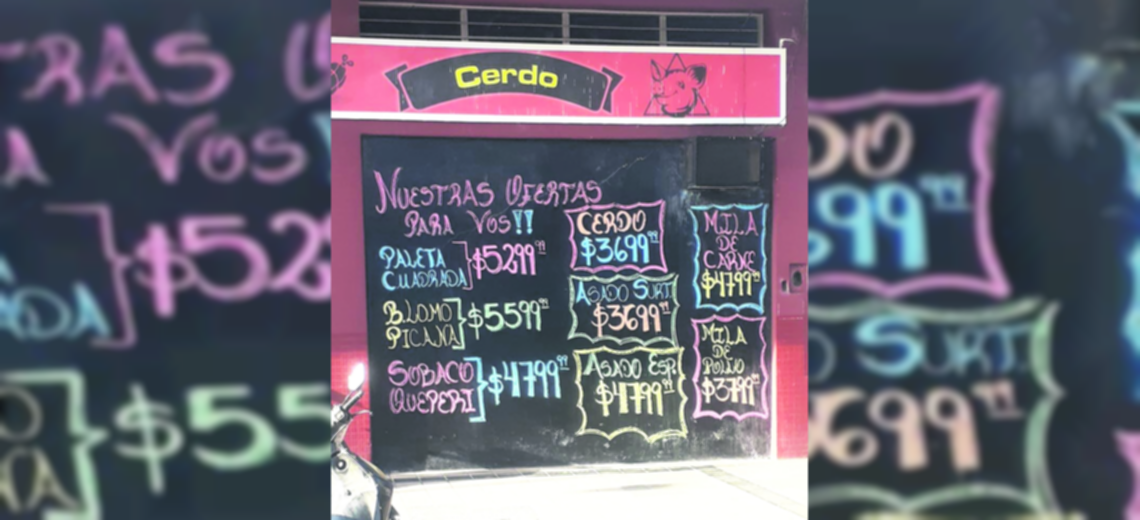 Cerdo
NUESTRAS OFERTAS
PARA VOS!!
PALETA
CUADRADA
$5299⁹⁹
B.LOMO
PICANA
$5599⁹⁹
SOBACO
QUEPERI
$4799⁹⁹
CERDO
$3699⁹⁹
ASADO SURT.
$3699⁹⁹
ASADO ESP.
$4799⁹⁹
MILA
DE
CARNE
$4799⁹⁹
MILA
DE
POLLO
$3799⁹⁹